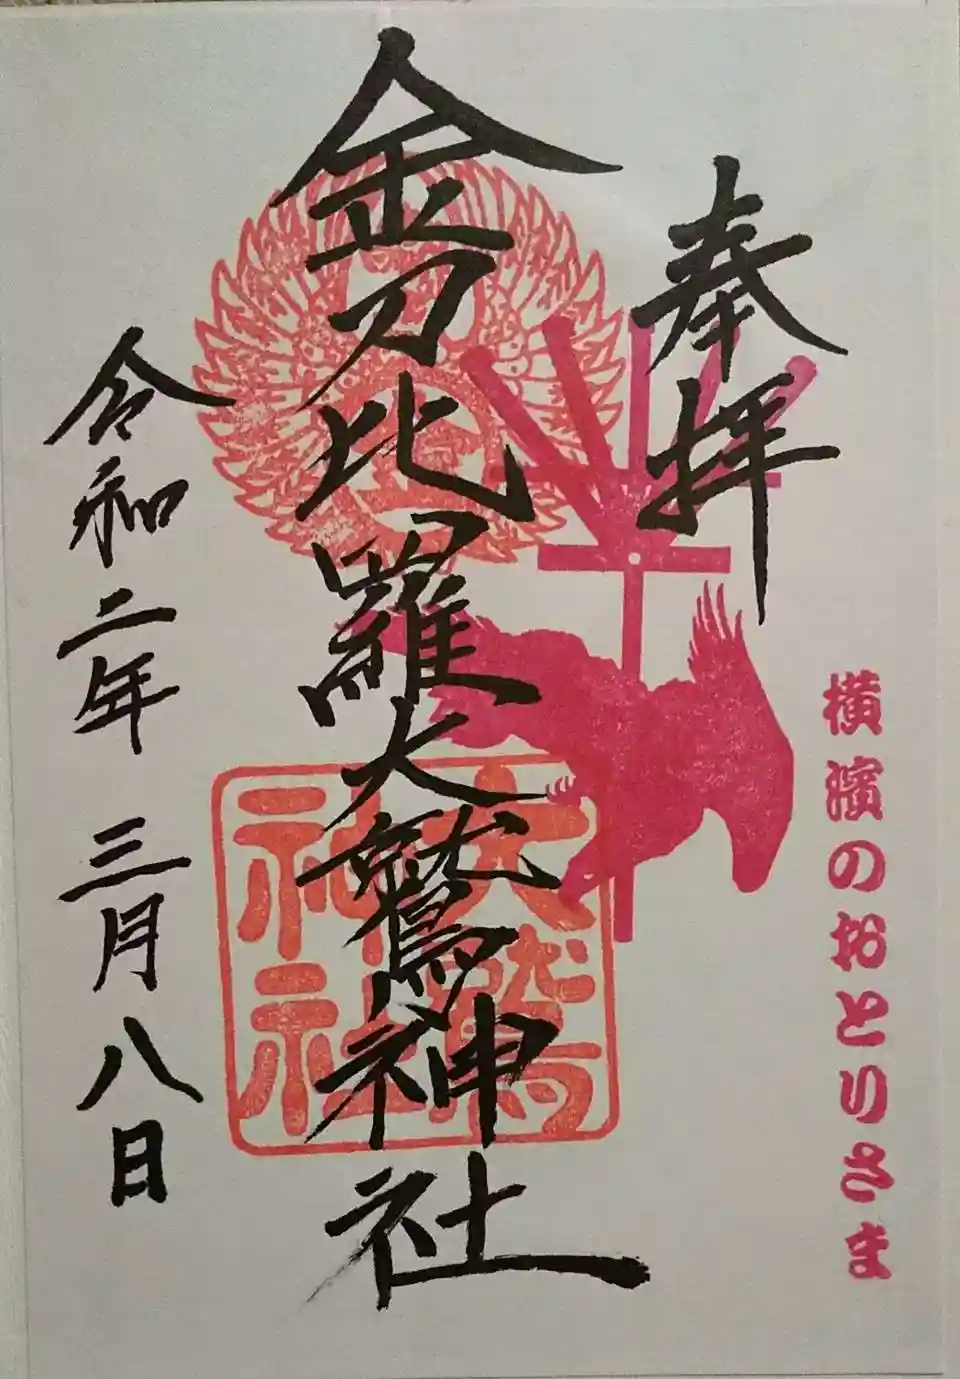 奉拝
横濱のおとりさま
金刀比羅大鷲神社
大鷲
神社
令和二年 三月八日